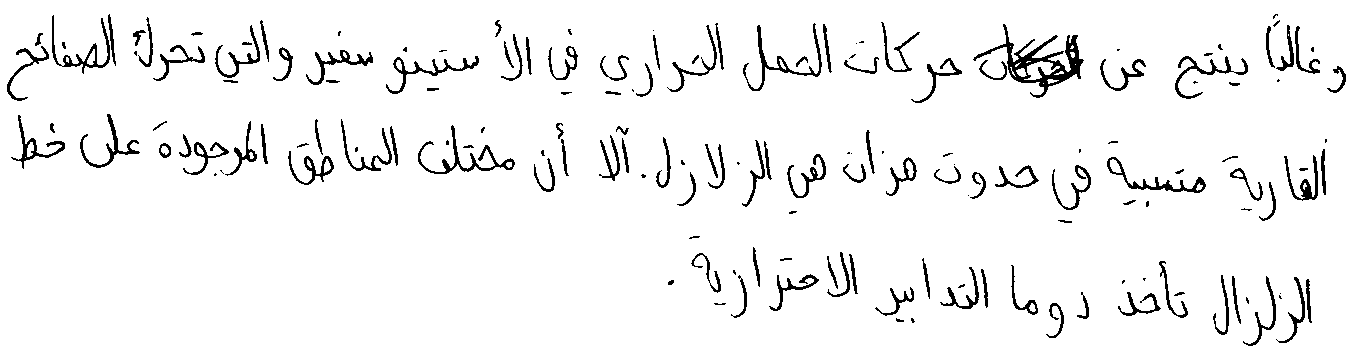 وغالبًا ينتج عن حركات الحمل الحراري في الأستينو سفير والتي تحرك الصفائح
القارية متسببة في حدوث هزات هي الزلازل. آلا أن مختلف المناطق الموجودة على خط
الزلزال تأخذ دوما التدابير الاحترازية.